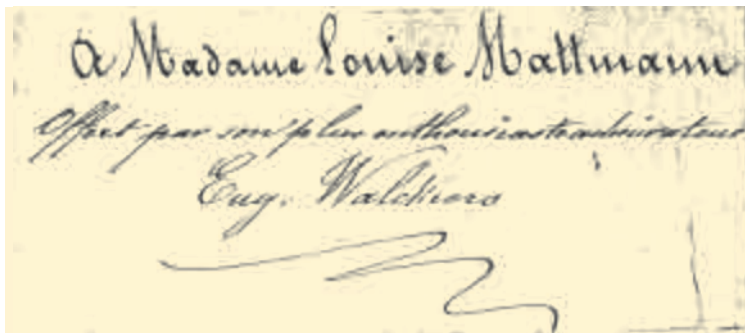 A Madame Louise Mattmann
Offert par son plus enthousiaste admirateur
Eug. Walckiers